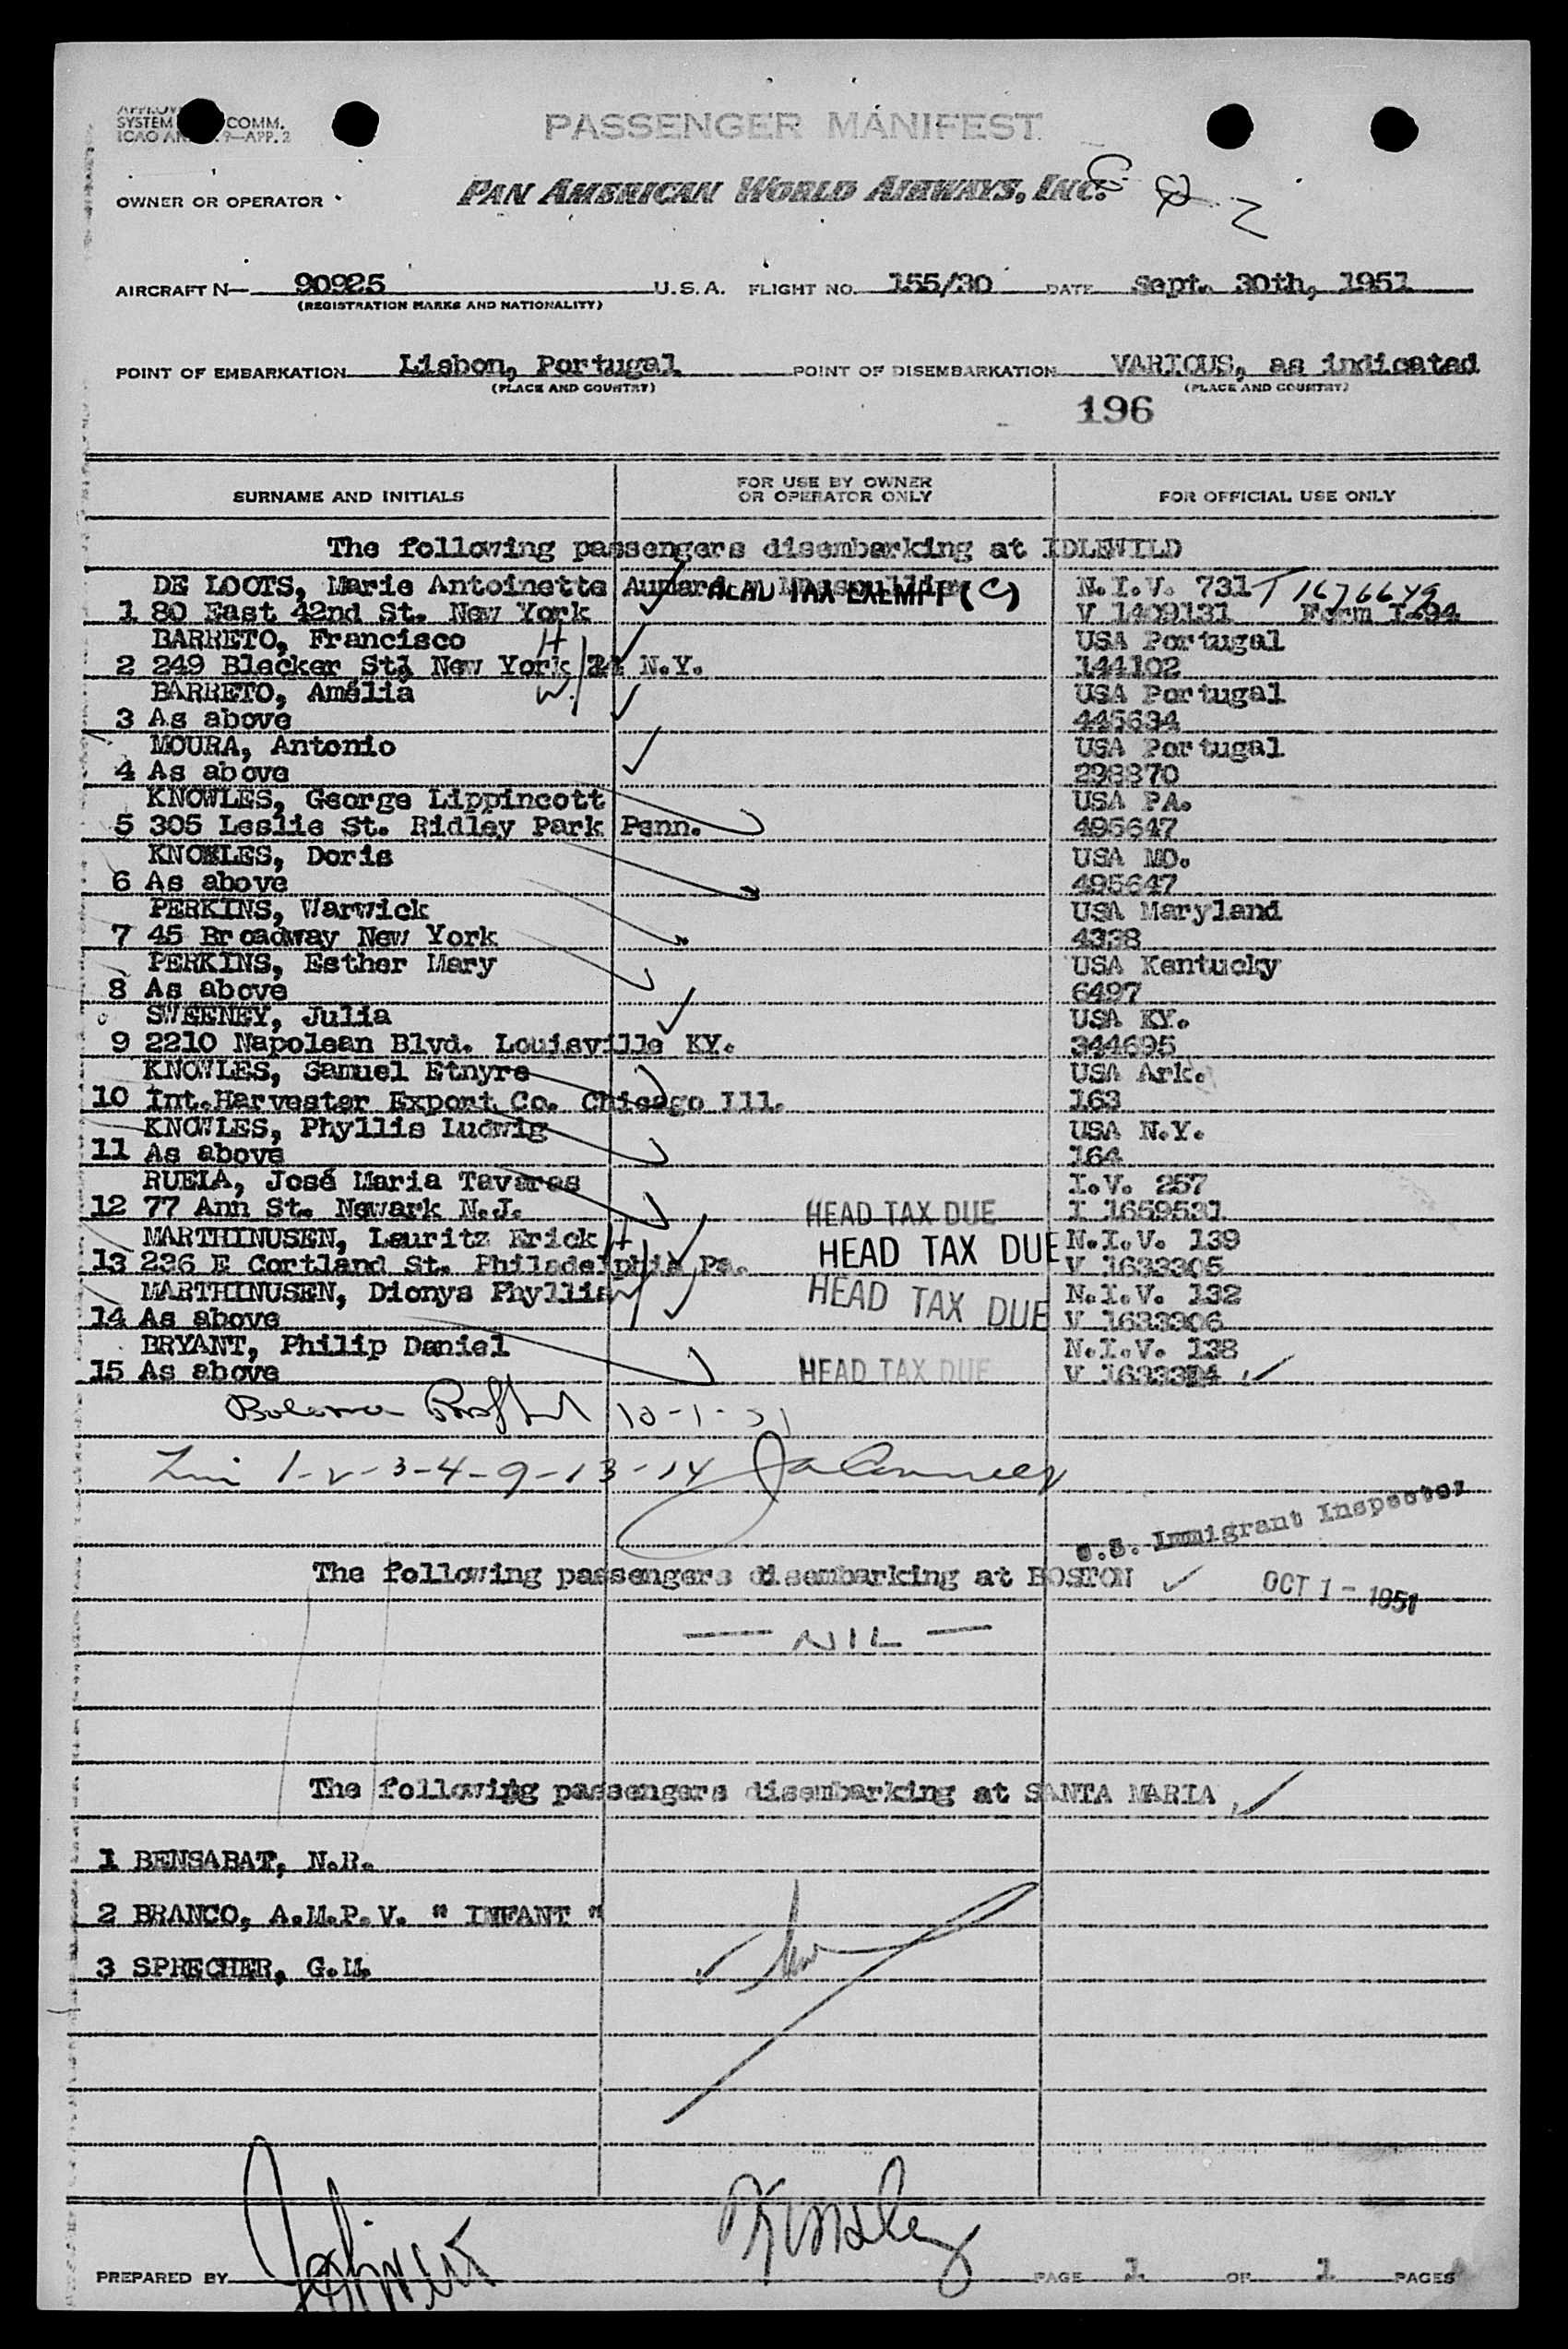 PASSENGER MANIFEST
SYSTEM COMM.
ICAO AN 9—APP. 2
OWNER OR OPERATOR
PAN AMERICAN WORLD AIRWAYS, INC.
AIRCRAFT N— 90925 U.S.A. FLIGHT NO. 155/30 DATE Sept. 30th, 1951
(REGISTRATION MARKS AND NATIONALITY)
POINT OF EMBARKATION Lisbon, Portugal POINT OF DISEMBARKATION VARIOUS, as indicated
(PLACE AND COUNTRY) (PLACE AND COUNTRY)
196
SURNAME AND INITIALS FOR USE BY OWNER OR OPERATOR ONLY FOR OFFICIAL USE ONLY
The following passengers disembarking at IDLEWILD
DE LOOTS, Marie Antoinette HEAD TAX EXEMPT (C) N.I.V. 731
1 80 East 42nd St. New York V 1409131 Form I-94
BARRETO, Francisco H USA Portugal
2 249 Blecker St, New York N.Y. 144102
BARRETO, Amélia W. USA Portugal
3 As above 445634
MOURA, Antonio USA Portugal
4 As above 298870
KNOWLES, George Lippincott USA PA.
5 305 Leslie St. Ridley Park Penn. 495647
KNOWLES, Doris USA MD.
6 As above 495647
PERKINS, Warwick USA Maryland
7 45 Broadway New York 4338
PERKINS, Esther Mary USA Kentucky
8 As above 6497
SWEENEY, Julia USA KY.
9 2210 Napolean Blvd. Louisville KY. 344695
KNOWLES, Samuel Etnyre USA Ark.
10 Int.Harvester Export Co. Chicago Ill. 163
KNOWLES, Phyllis Ludwig USA N.Y.
11 As above 164
RUELA, José Maria Tavares I.V. 257
12 77 Ann St. Newark N.J. HEAD TAX DUE I 1659531
MARTHINUSEN, Lauritz Erick H HEAD TAX DUE N.I.V. 139
13 226 E Cortland St. Philadelphia Pa. V 1633305
MARTHINUSEN, Dionys Phyllis W HEAD TAX DUE N.I.V. 132
14 As above V 1633306
BRYANT, Philip Daniel N.I.V. 138
15 As above HEAD TAX DUE V
10-1-51
1-2-3-4-9-13-14
U.S. Immigrant Inspector
The following passengers disembarking at BOSTON OCT 1 - 1951
— NIL —
The following passengers disembarking at SANTA MARIA
1 BENSABAT, N.R.
2 BRANCO, A.M.P.V. " INFANT "
3 SPRECHER, G.M.
PREPARED BY PAGE 1 OF 1 PAGES